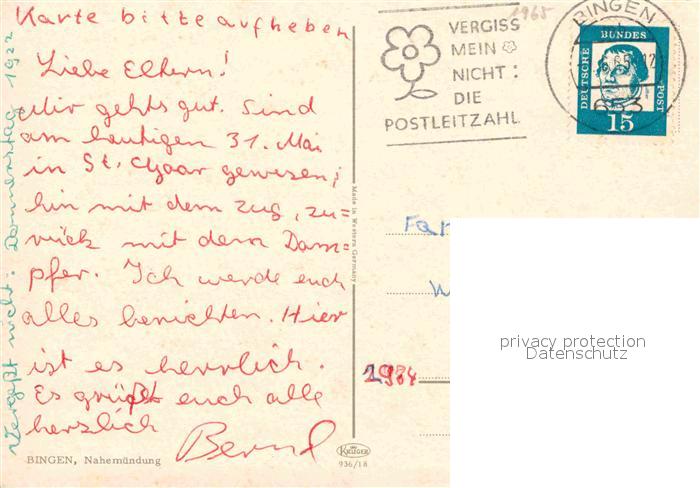 Karte bitte aufheben
Liebe Eltern!
Mir gehts gut. Sind
am heutigen 31. Mai
in St. Goar gewesen;
hin mit dem Zug, zu=
rück mit dem Dam=
pfer. Ich werde euch
alles berichten. Hier
ist es herrlich.
Es grüßt euch alle
herzlich Bernd
Vergeßt nicht: Donnerstag 1922
BINGEN, Nahemündung
Made in Western Germany
KRÜGER
936/18
1965
VERGISS
MEIN
NICHT:
DIE
POSTLEITZAHL
BINGEN
653
DEUTSCHE BUNDESPOST
15
Fa
W
1984
privacy protection
Datenschutz